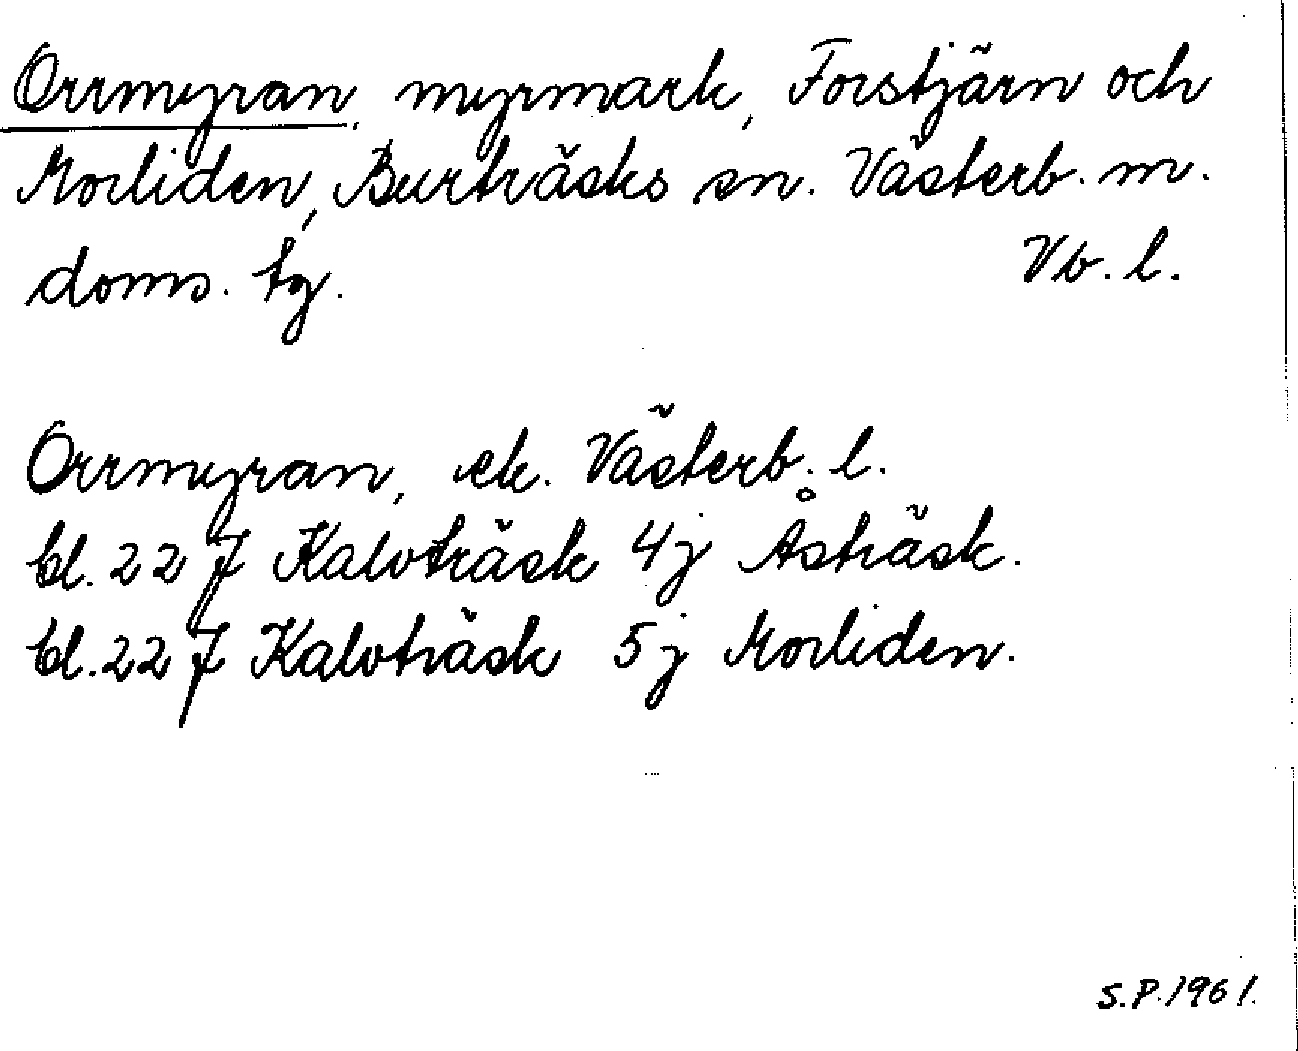 Orrmyran, myrmark, Forstjärn och
Morliden, Burträsks sn. Västerb. m.
doms. tg. Vb. l.
Orrmyran, ek. Västerb. l.
bl. 22 J Kalvträsk 4j Åsträsk.
bl. 22 J Kalvträsk 5j Morliden.
S.P. 1961.